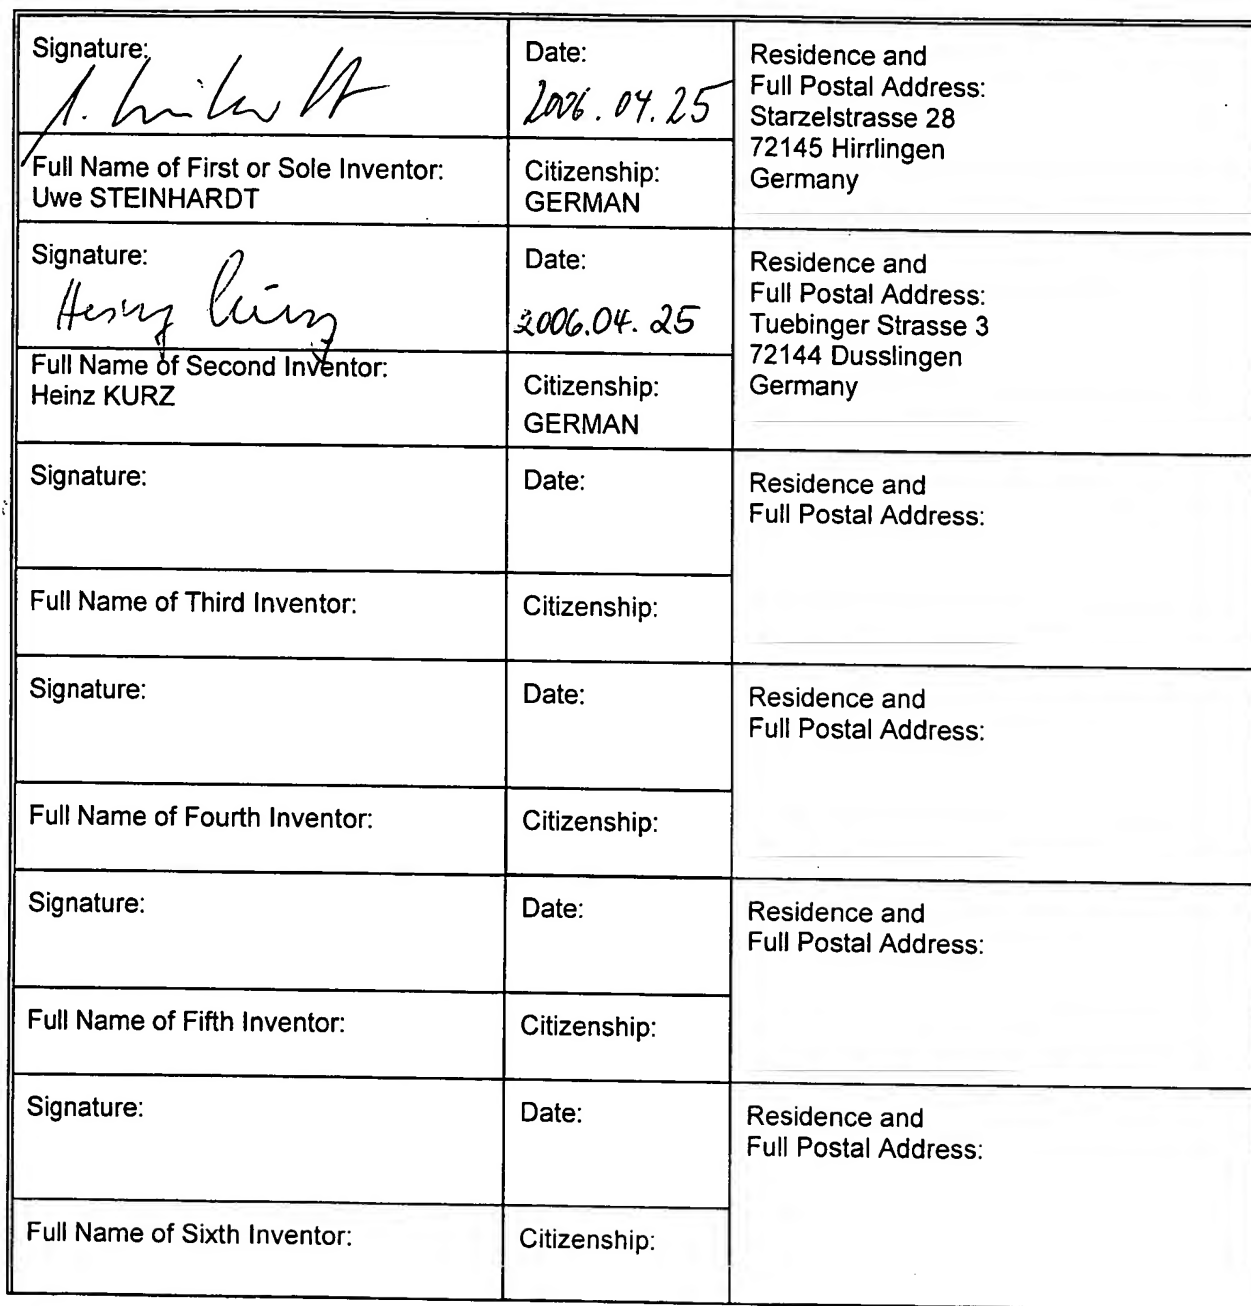 Signature:
Date:
2006.04.25
Residence and
Full Postal Address:
Starzelstrasse 28
72145 Hirrlingen
Germany
Full Name of First or Sole Inventor:
Uwe STEINHARDT
Citizenship:
GERMAN
Signature:
Heinz Kurz
Date:
2006.04.25
Residence and
Full Postal Address:
Tuebinger Strasse 3
72144 Dusslingen
Germany
Full Name of Second Inventor:
Heinz KURZ
Citizenship:
GERMAN
Signature:
Date:
Residence and
Full Postal Address:
Full Name of Third Inventor:
Citizenship:
Signature:
Date:
Residence and
Full Postal Address:
Full Name of Fourth Inventor:
Citizenship:
Signature:
Date:
Residence and
Full Postal Address:
Full Name of Fifth Inventor:
Citizenship:
Signature:
Date:
Residence and
Full Postal Address:
Full Name of Sixth Inventor:
Citizenship: